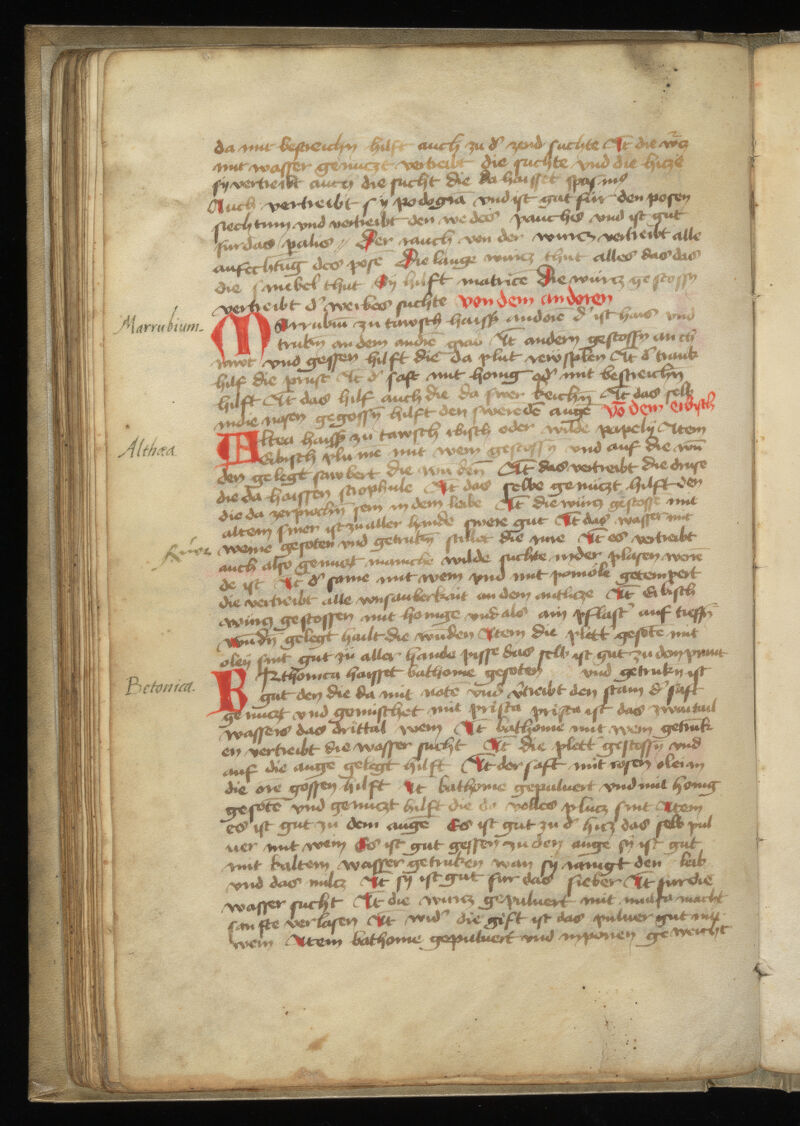 da mit bestreichn hilft auch zu d̕ zend suchte It die wrͨz
mit wasser genuczt vertreibt die suchte vnd die hicze
sy vertreibt auch die sucht die da haisset spasmus
Auch vertreibt sy podogra vnd ist gut fur den posen
siechtum vnd vertreibt den we des pauchs vnd ist gut
fur das palis Der rauch von der wurcz vertreibt alle
anfechtūg des pose Die lange wurcz thut alles das das
die sinebel thut Sy hilft matrice Die wurcz gestossn
vertreibt d̕ weibes suchte von dem andoren
Marrubium.
Marrubiū zu tawsch haisst andore d̕ ist hais vnd
trukn an dem andn̄ grad It andorn gestossn an ch
not vnd gessen hilft die da plut verwspibn It d̕ trank
hilf die prust It d̕ saft mit honig od̕ mit bestreichn
hilft It das hilf auch die da swer keichn It das selb
in die nasen gegossn hilft den swerēde auge vō dem eibisch
Althæa.
Altea haisst zu tawsch ibisch oder wilde papely Item
Eibisch plume mit wein gestossn vnd auf die wū
den gelegt sawbert die wunden It das vertreibt die druse
die da haissen strophule It das selbe genuczt hilft den
die da zerprochn sein in dem leibe It die wurcz gestosse mit
altem smer ist zu aller hande swere gut It das wasser mit
weine gesoten vnd getrukn stillet die rure It es vertreibt
auch also genuczt maniche wilde suchte in der plasen were
de ist It d̕ same mit wein vnd mit pomöle getempert
die vertreibt alle vnsauberkait an dem antlicze It Eibisch
wurcz gestossen mit honige vnd als ain pflast̕ auf tieffn
wūdn gelegt hailt die wunden Item die plett gesotē mit
oley sint gut zu aller hande pisse das selb ist gut zu dem prant
Betonica.
BEthonica haisset bathonie gesoten vnd getrukn ist
gut den die da mit note vnd v̕treibt den stain d̕ saft
genuczt vnd gemischet mit prista prista ist das zwaitail
wassers das drittail wein It bathonie mit wein getrūk
en vertreibt die wasser sucht It die plett gestossn vnd
auf die auge gelegt hilft It der saft mit rosen olei in
die ore gossen hilft It bathonie gepuluert vnd mit honig
gesotē vnd genuczt hilft die da volles plutz sint Item
es ist gut zu dem auge Es ist gut zu d̕ hicz das selb pul
uer mit wein Es ist gut gessen zu den auge sy ist gut
mit kaltem wasser getruken wan sy rainigt den leib
vnd das milcz It sy ist gut fur das fieber It fur die
wasser sucht It die wurcz gepuluert mit mulsa macht
sanfte verlasen It wid̕ die gift ist das puluer gut mit
wein Item bathonie gepuluert vnd in ponen geweicht